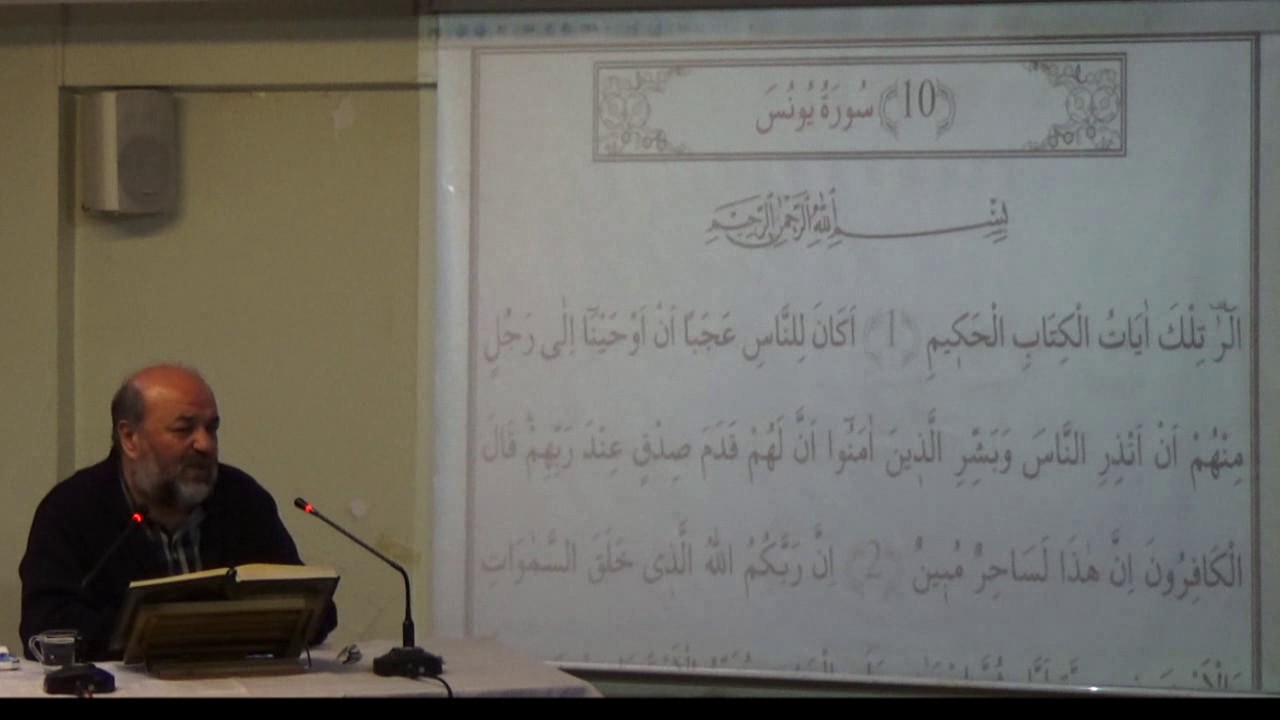 سُورَةُ يُونُسَ (10)
بِسْمِ اللّٰهِ الرَّحْمٰنِ الرَّحِيمِ
الٓرٰ تِلْكَ اٰيَاتُ الْكِتَابِ الْحَكٖيمِ (1) اَكَانَ لِلنَّاسِ عَجَبًا اَنْ اَوْحَيْنَٓا اِلٰى رَجُلٍ
مِنْهُمْ اَنْ اَنْذِرِ النَّاسَ وَبَشِّرِ الَّذٖينَ اٰمَنُٓوا اَنَّ لَهُمْ قَدَمَ صِدْقٍ عِنْدَ رَبِّهِمْ قَالَ
الْكَافِرُونَ اِنَّ هٰذَا لَسَاحِرٌ مُبٖينٌ (2) اِنَّ رَبَّكُمُ اللّٰهُ الَّذٖى خَلَقَ السَّمٰوَاتِ